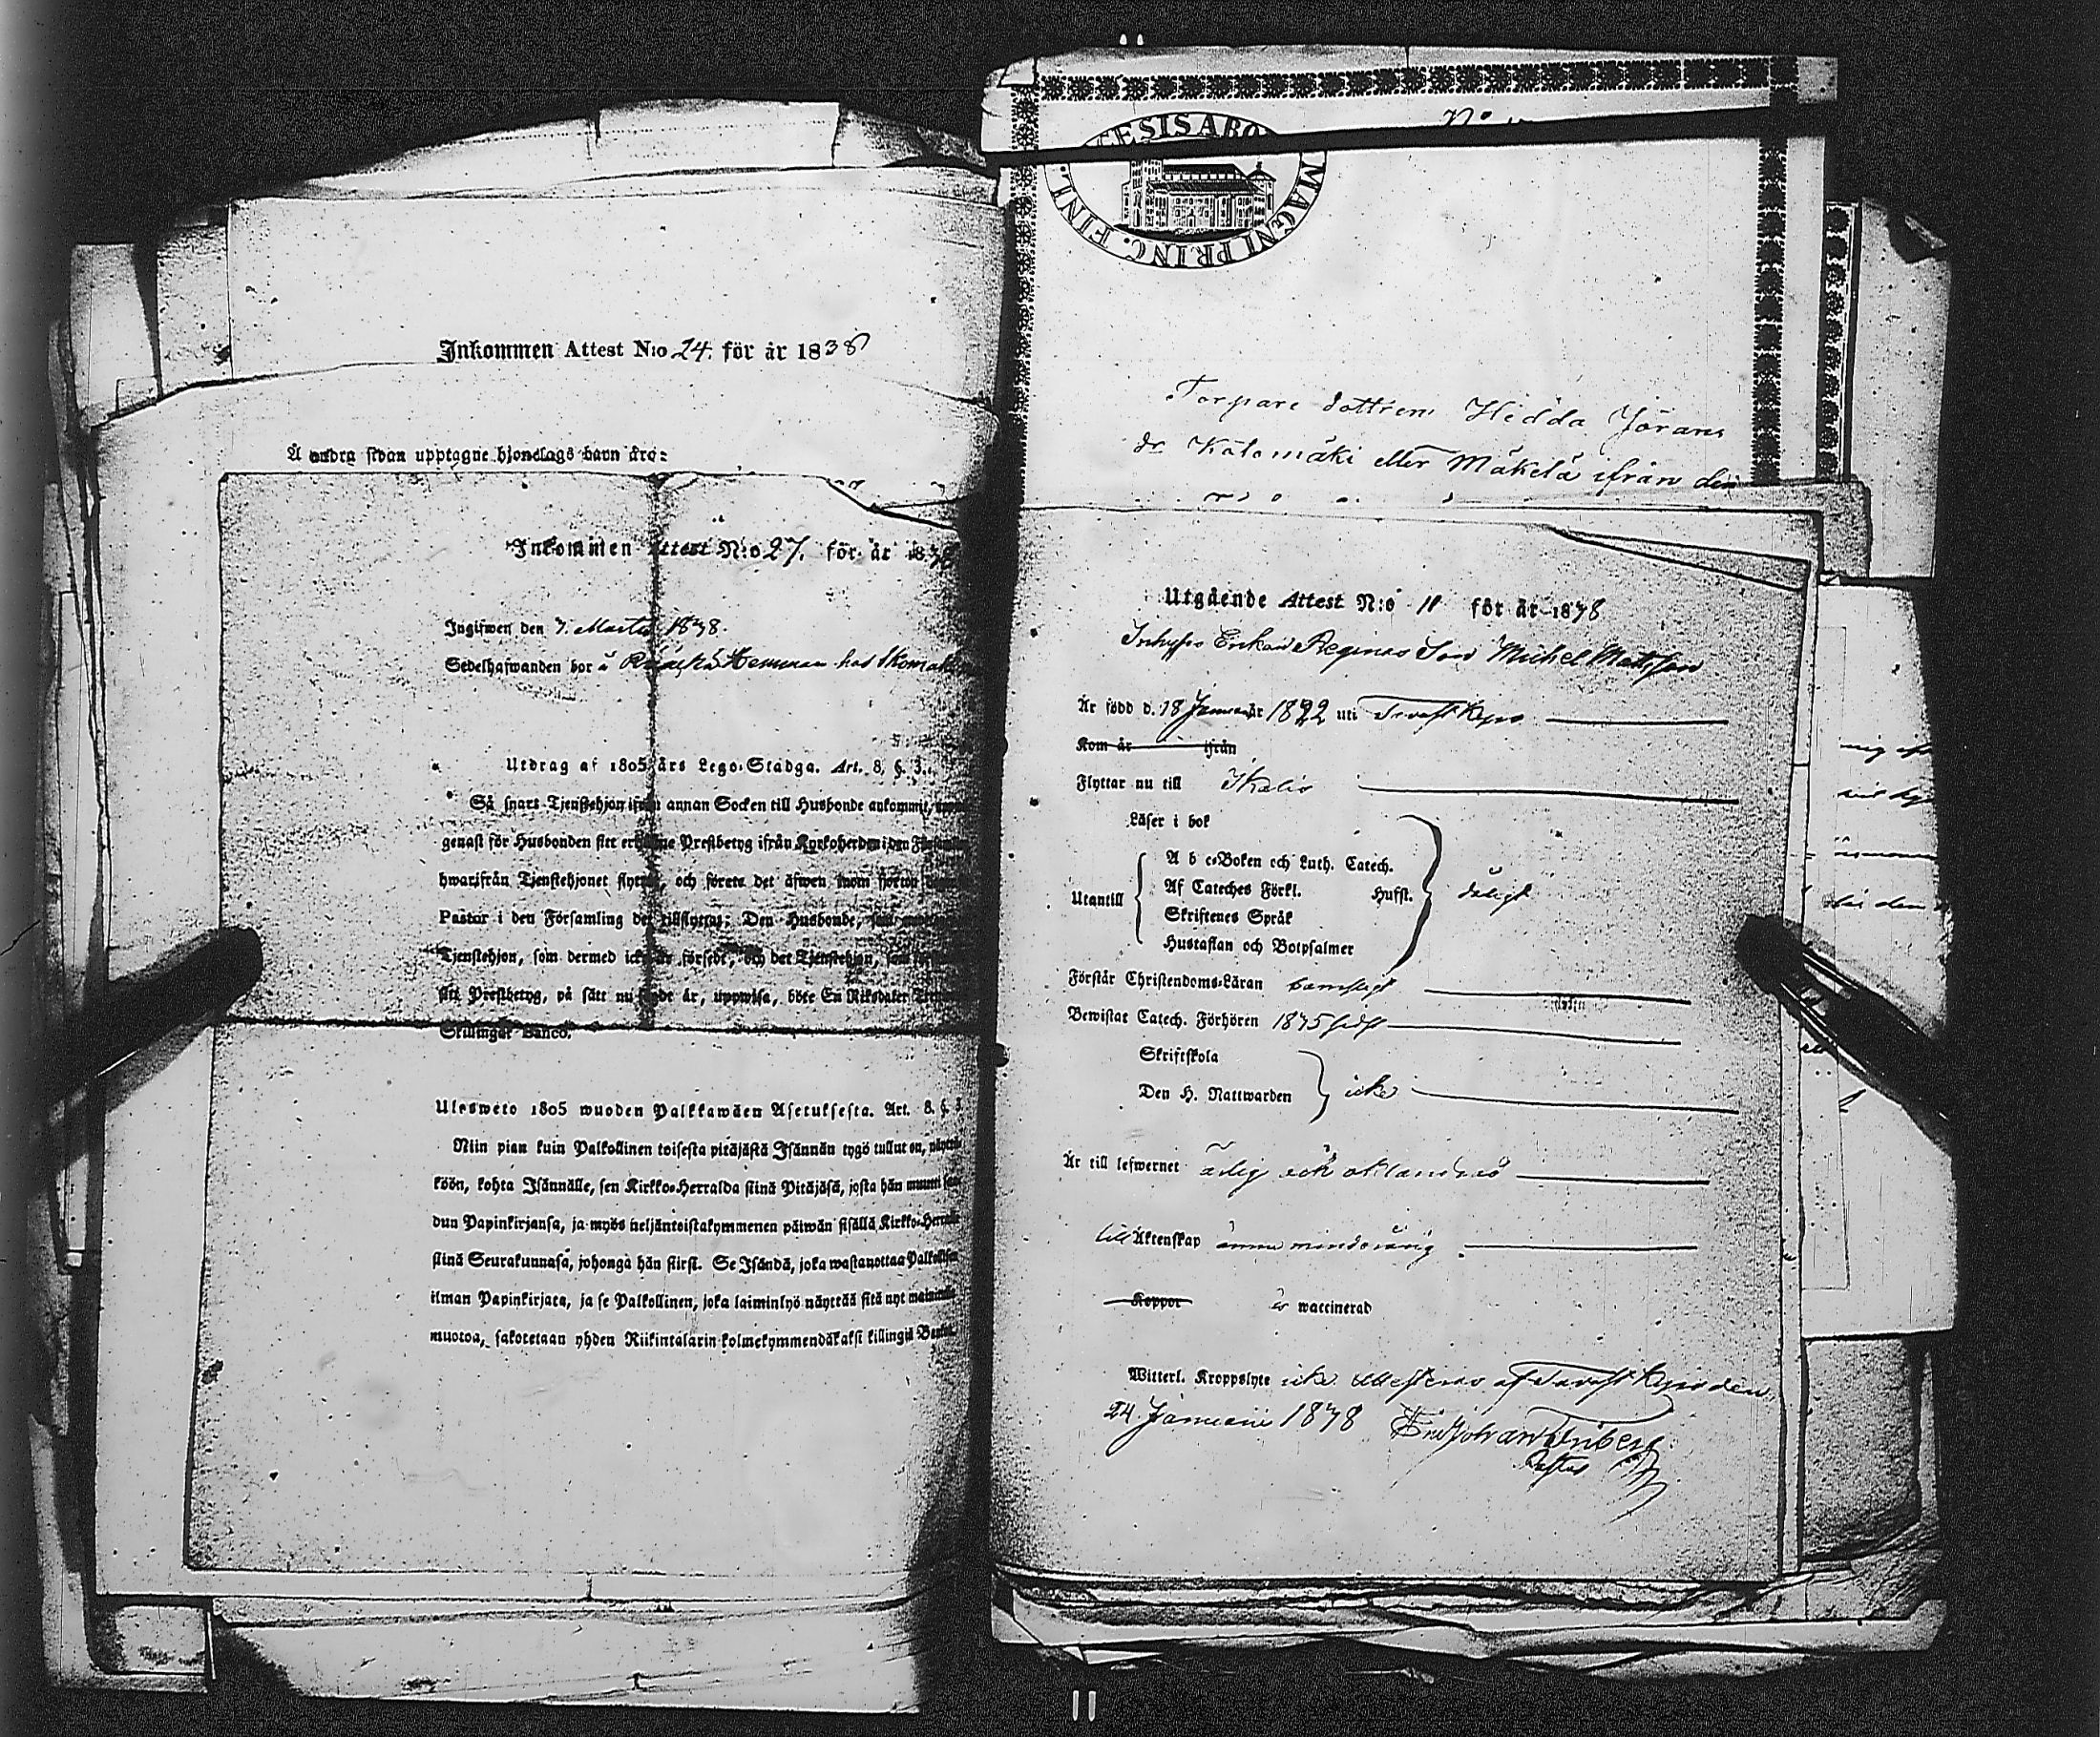 Inkommen Attest N:o 24. för år 1838
Å andra sidan upptagne hjonelags barn äro:
Inkommen Attest N:o 27. för år 1838
Ingifwen den 7. Martii 1838.
Sedelhafwanden bor å hemman hos Skomak
Utdrag af 1805 års Lego-Stadga. Art. 8, §. 3.
Så snart Tjenstehjon ifrån annan Socken till Husbonde ankommit,
genast för Husbonden sitt erhållne Prestbetyg ifrån Kyrkoherden i den
hwarifrån Tjenstehjonet flyttat, och förete det äfwen inom fjorton
Pastor i den Församling det tillflyttat: Den Husbonde,
Tjenstehjon, som dermed icke är försedt, och det Tjenstehjon, som
sitt Prestbetyg, på sätt nu sagdt är, uppwisa, böte En Riksdaler
Skillingar Banco.
Ulosweto 1805 wuoden Palkkawäen Asetuksesta. Art. 8. §. 3
Niin pian kuin Palkollinen toisesta pitäjästä Isännän tygö tullut on,
köön, kohta Isännälle, sen Kirkko-Herralda siinä Pitäjäsä, josta hän muutti
dun Papinkirjansa, ja myös neljäntoistakymmenen päiwän sisällä Kirkko-
siinä Seurakunnasa, johonga hän siirsi. Se Isändä, joka wastanottaa
ilman Papinkirjata, ja se Palkollinen, joka laiminlyö näyttää sitä nyt
muotoa, sakotetaan yhden Riikintalarin kolmekymmendäkaksi killingiä
MAGNI PRINC. FINL.
Torpare dottren Hedda Jörans
dr Kátomäki eller Mäkelä ifrån
Utgående Attest N:o 11 för år 1838
Inhyses Enkan Reginas Son Michel Mattsson
Är född d. 18 Januar 1822 uti Tavastkyro
Kom år ifrån
Flyttar nu till Ikalis
Läser i bok
Utantill
A b c-Boken och Luth. Catech.
Af Cateches Förkl. Hufst.
Skriftenes Språk
Hustaflan och Botpsalmer
dåligt
Förstår Christendoms-Läran
Bewistat Catech. Förhören 1835 sidst
Skriftskola
Den H. Nattwarden
icke
Är till lefwernet ärlig och oklandrad
till Äktenskap ännu minderårig
Koppor är waccinerad
Witterl. Kroppslyte icke Attesteras af Tavastkyro den
24 Januarii 1838
Pastor